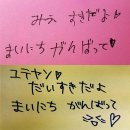 みう すきだよ♡
まいにち がんばって♡
ユチヤン♡
だいすきだよ
まいにち がんばって